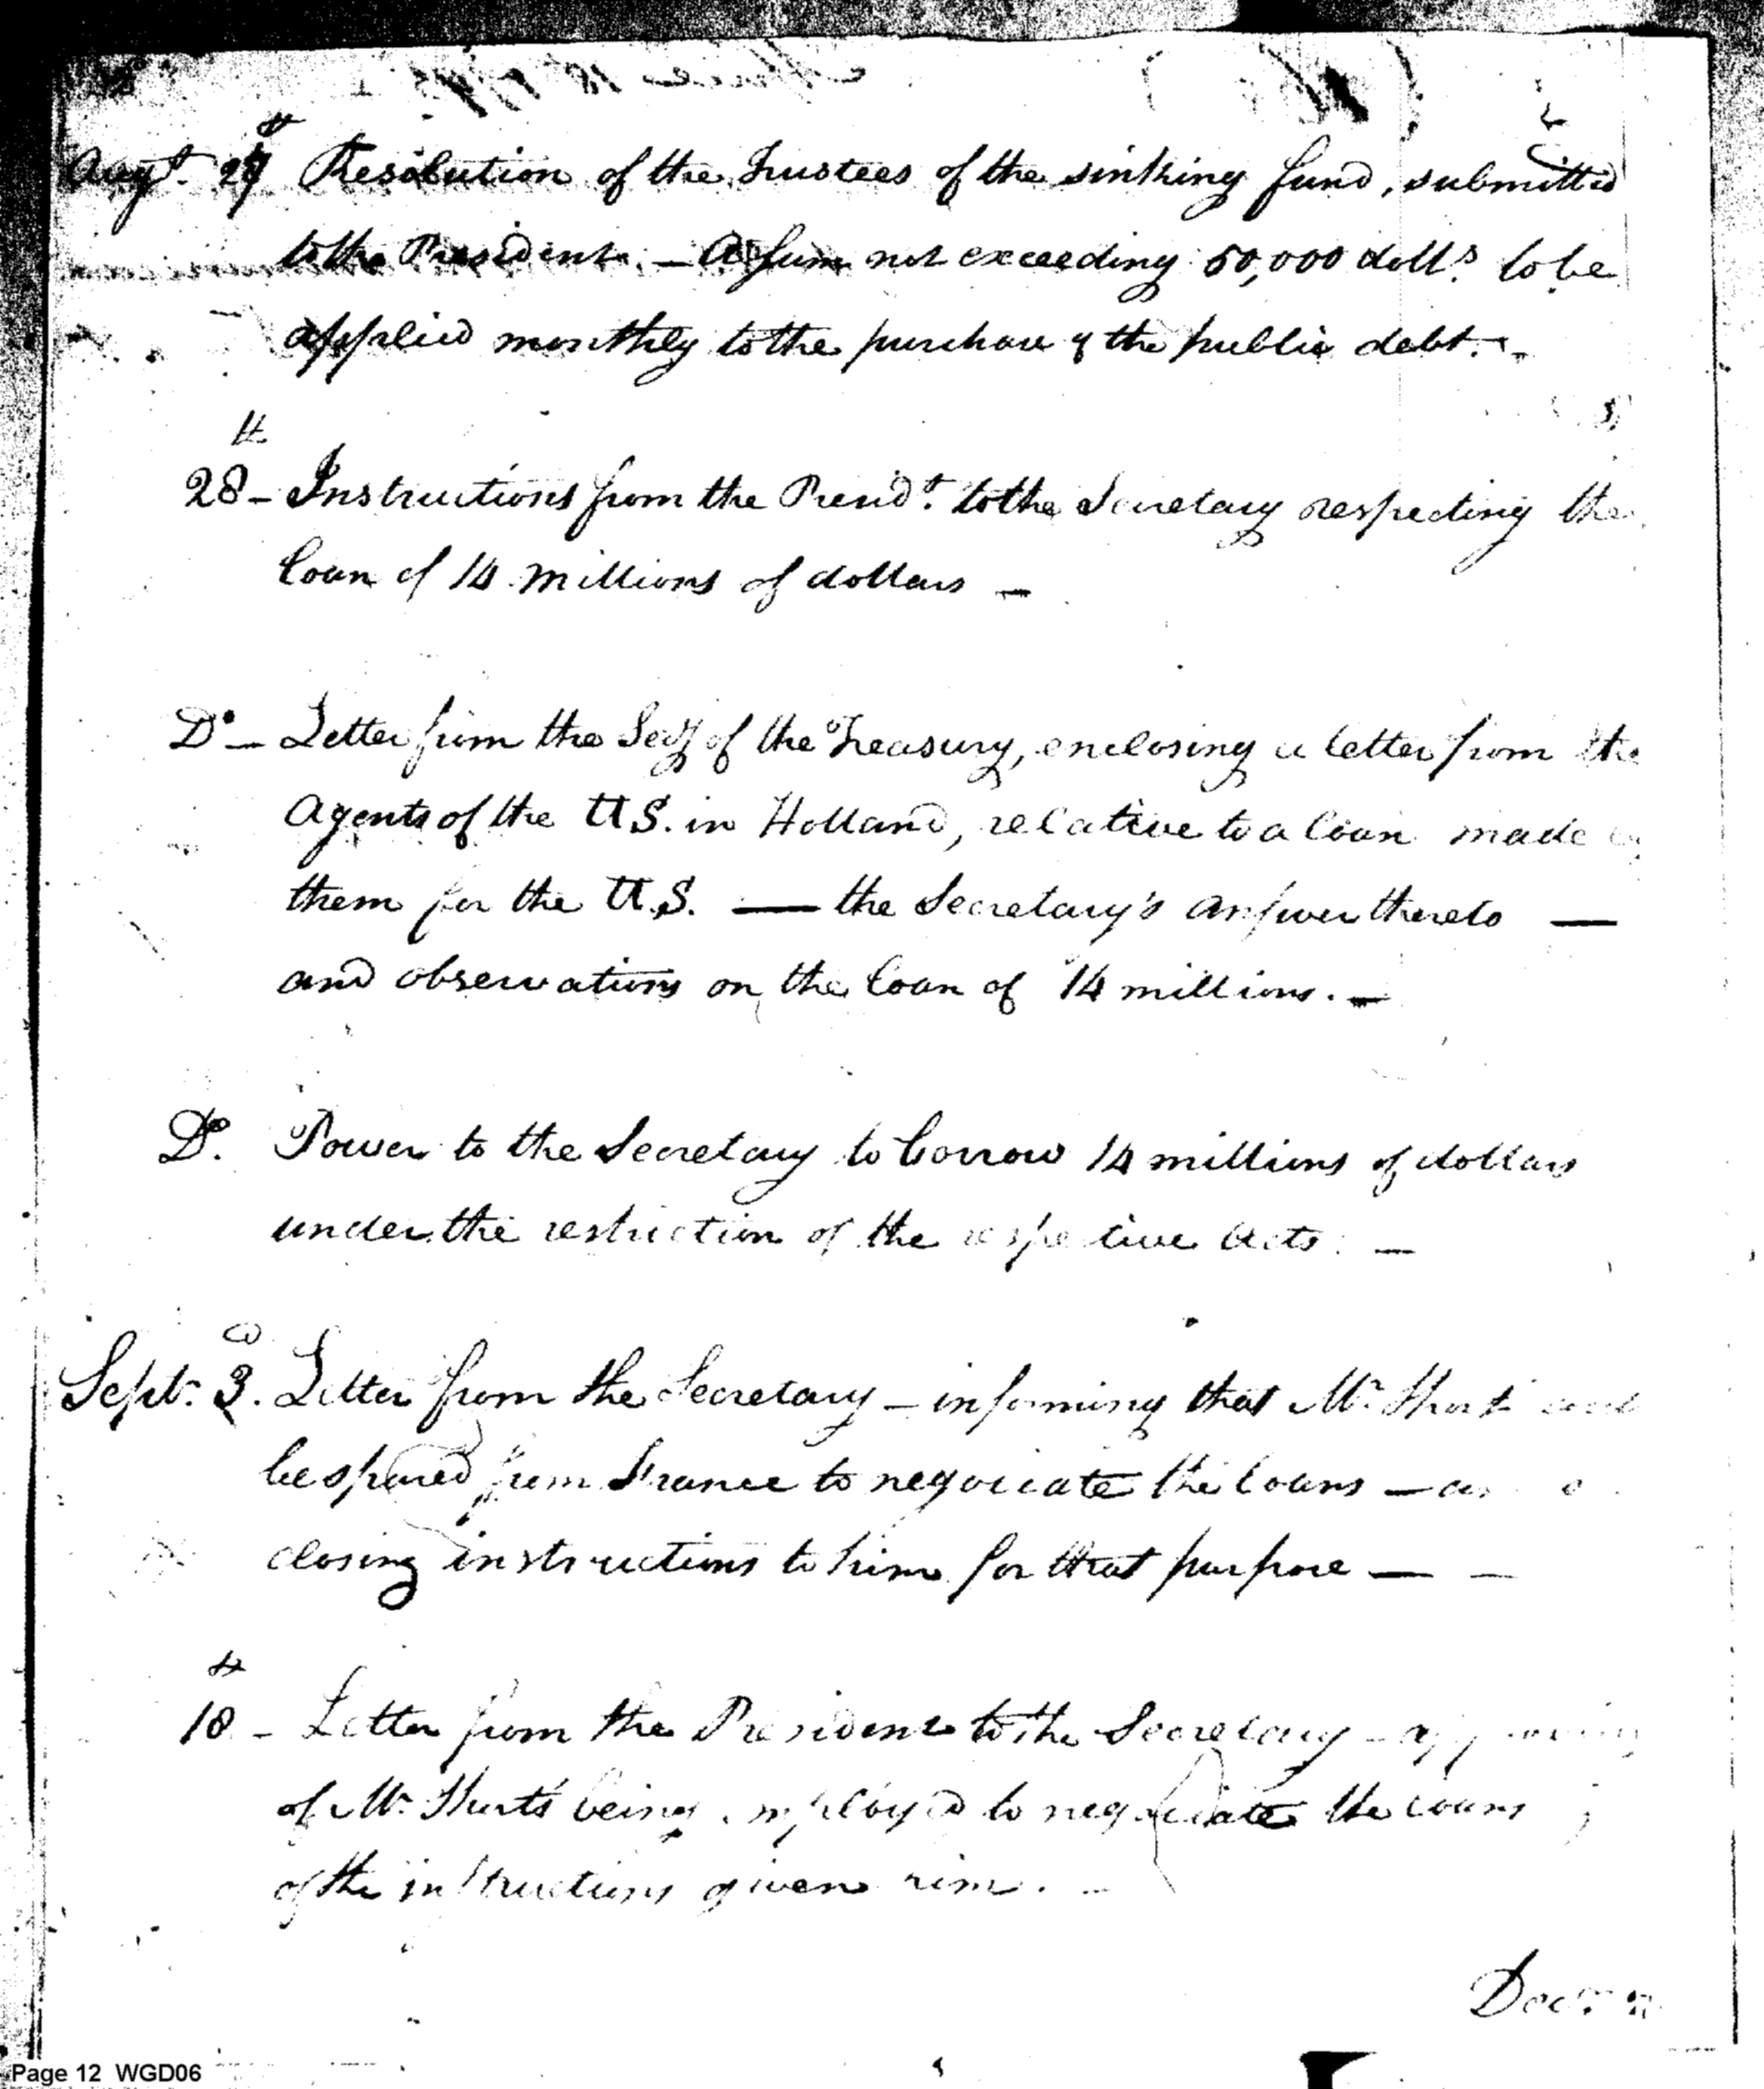 Augt. 27th Resolution of the Trustees of the sinking fund, submitted
to the President. — A sum not exceeding 50,000 dolls. to be
applied monthly to the purchase of the public debt. —
28th — Instructions from the Presidt. to the Secretary respecting the
loan of 14 millions of dollars —
Do — Letter from the Secy of the Treasury, enclosing a letter from the
Agents of the U.S. in Holland, relative to a loan made by
them for the U.S. — the Secretary's answer thereto —
and observations on the loan of 14 millions. —
Do. Power to the Secretary to borrow 14 millions of dollars
under the restriction of the respective Acts. —
Septr. 3d. Letter from the Secretary — informing that Mr. Short
be spared from France to negociate the loans —
closing instructions to him for that purpose — —
10th — Letter from the President to the Secretary — approving
of Mr. Short's being employed to negociate the loans
of the instructions given him. —
Page 12 WGD06